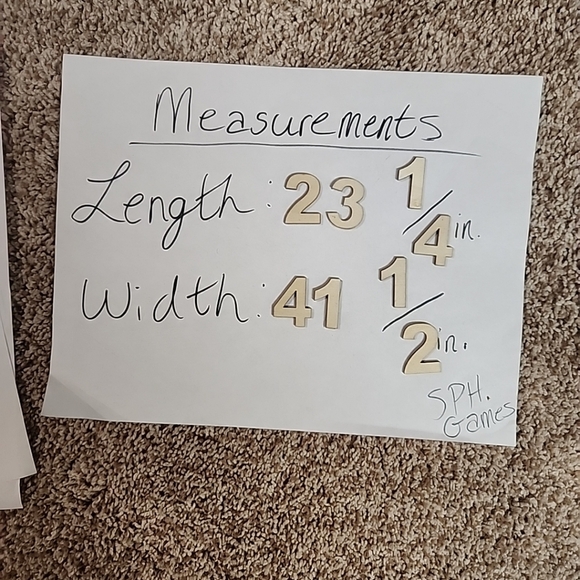 Measurements
Length: 23 1/4 in.
Width: 41 1/2 in.
SPH.
Games